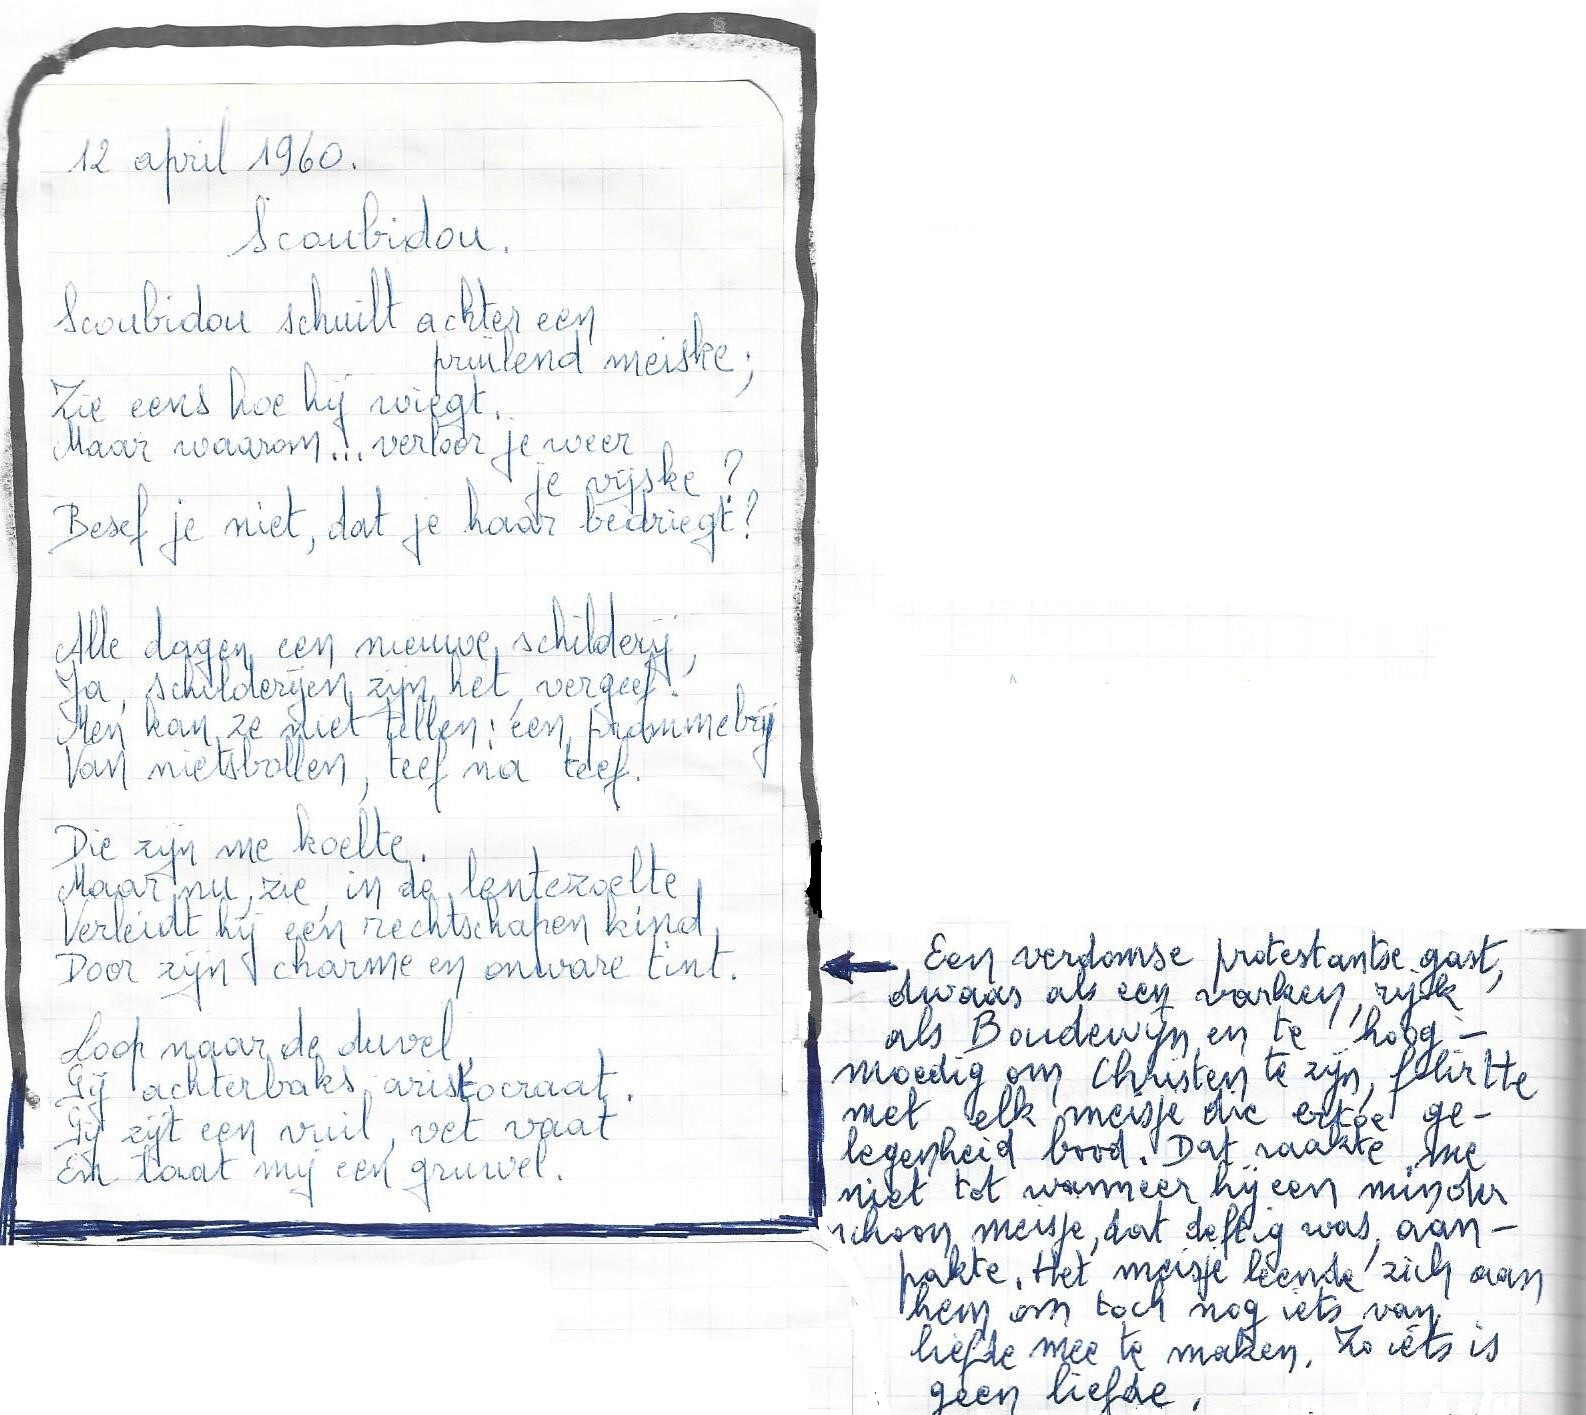 12 april 1960.
Scoubidou.
Scoubidou schuilt achter een
prüilend meiske;
Zie eens hoe hij wiegt.
Maar waarom... verloor je weer
je vijske?
Besef je niet, dat je haar bedriegt?
Alle dagen een nieuwe schilderij,
Ja, schilderijen zijn het, vergeef!
Men kan ze niet tellen: een prommebrij
Van nietsbollen, teef na teef.
Die zijn me koelte.
Maar nu, zie, in de lentezoelte
Verleidt hij eén rechtschapen kind,
Door zijn charme en onware tint.
Loop naar de duvel,
Gij achterbaks aristocraat.
Gij zijt een vuil, vet vaat
En laat mij een gruwel.
Een verdomse protestantse gast,
dwaas als een varken, rijk
als Boudewijn en te hoog-
moedig om Christen te zijn, flirtte
met elk meisje die ertoe ge-
legenheid bood. Dat raakte me
niet tot wanneer hij een minder
schoon meisje, dat deftig was, aan-
pakte. Het meisje leende zich aan
hem om toch nog iets van
liefde mee te maken. Zo iéts is
geen liefde.